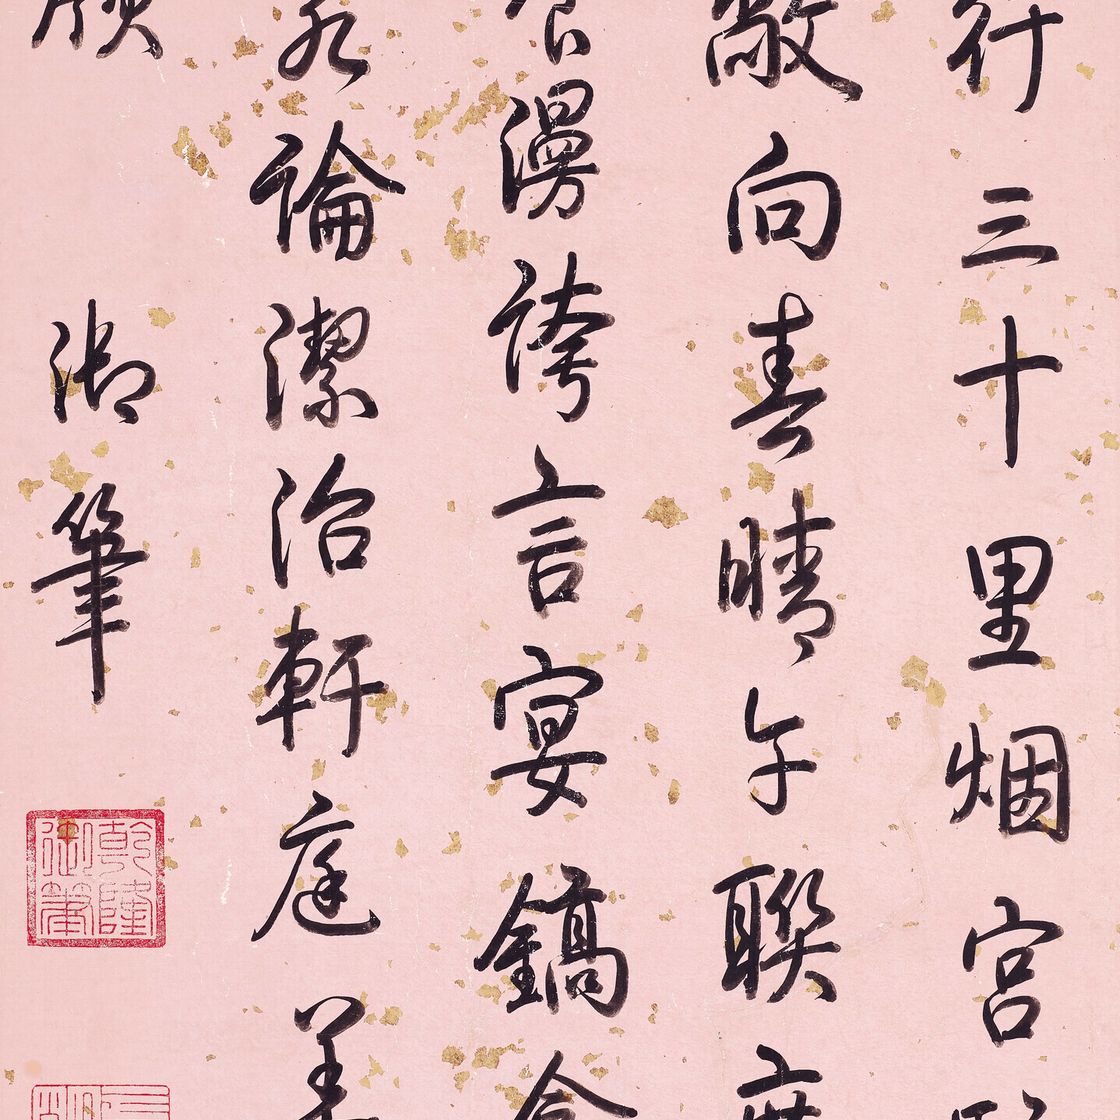 行三十里烟宮
敞向春晴午聯
漫誇言宴鎬
論潔治軒庭
御筆
乾隆
御筆